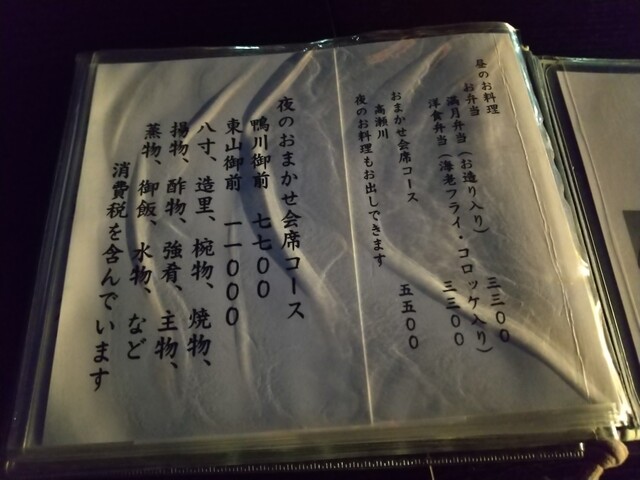 昼のお料理
お弁当
満月弁当(お造り入り) 三三〇〇
洋食弁当(海老フライ・コロッケ入り) 三三〇〇
おまかせ会席コース
高瀬川 五五〇〇
夜のお料理もお出しできます
夜のおまかせ会席コース
鴨川御前 七七〇〇
東山御前 一一〇〇〇
八寸、造里、椀物、焼物、
揚物、酢物、強肴、主物、
蒸物、御飯、水物、など
消費税を含んでいます